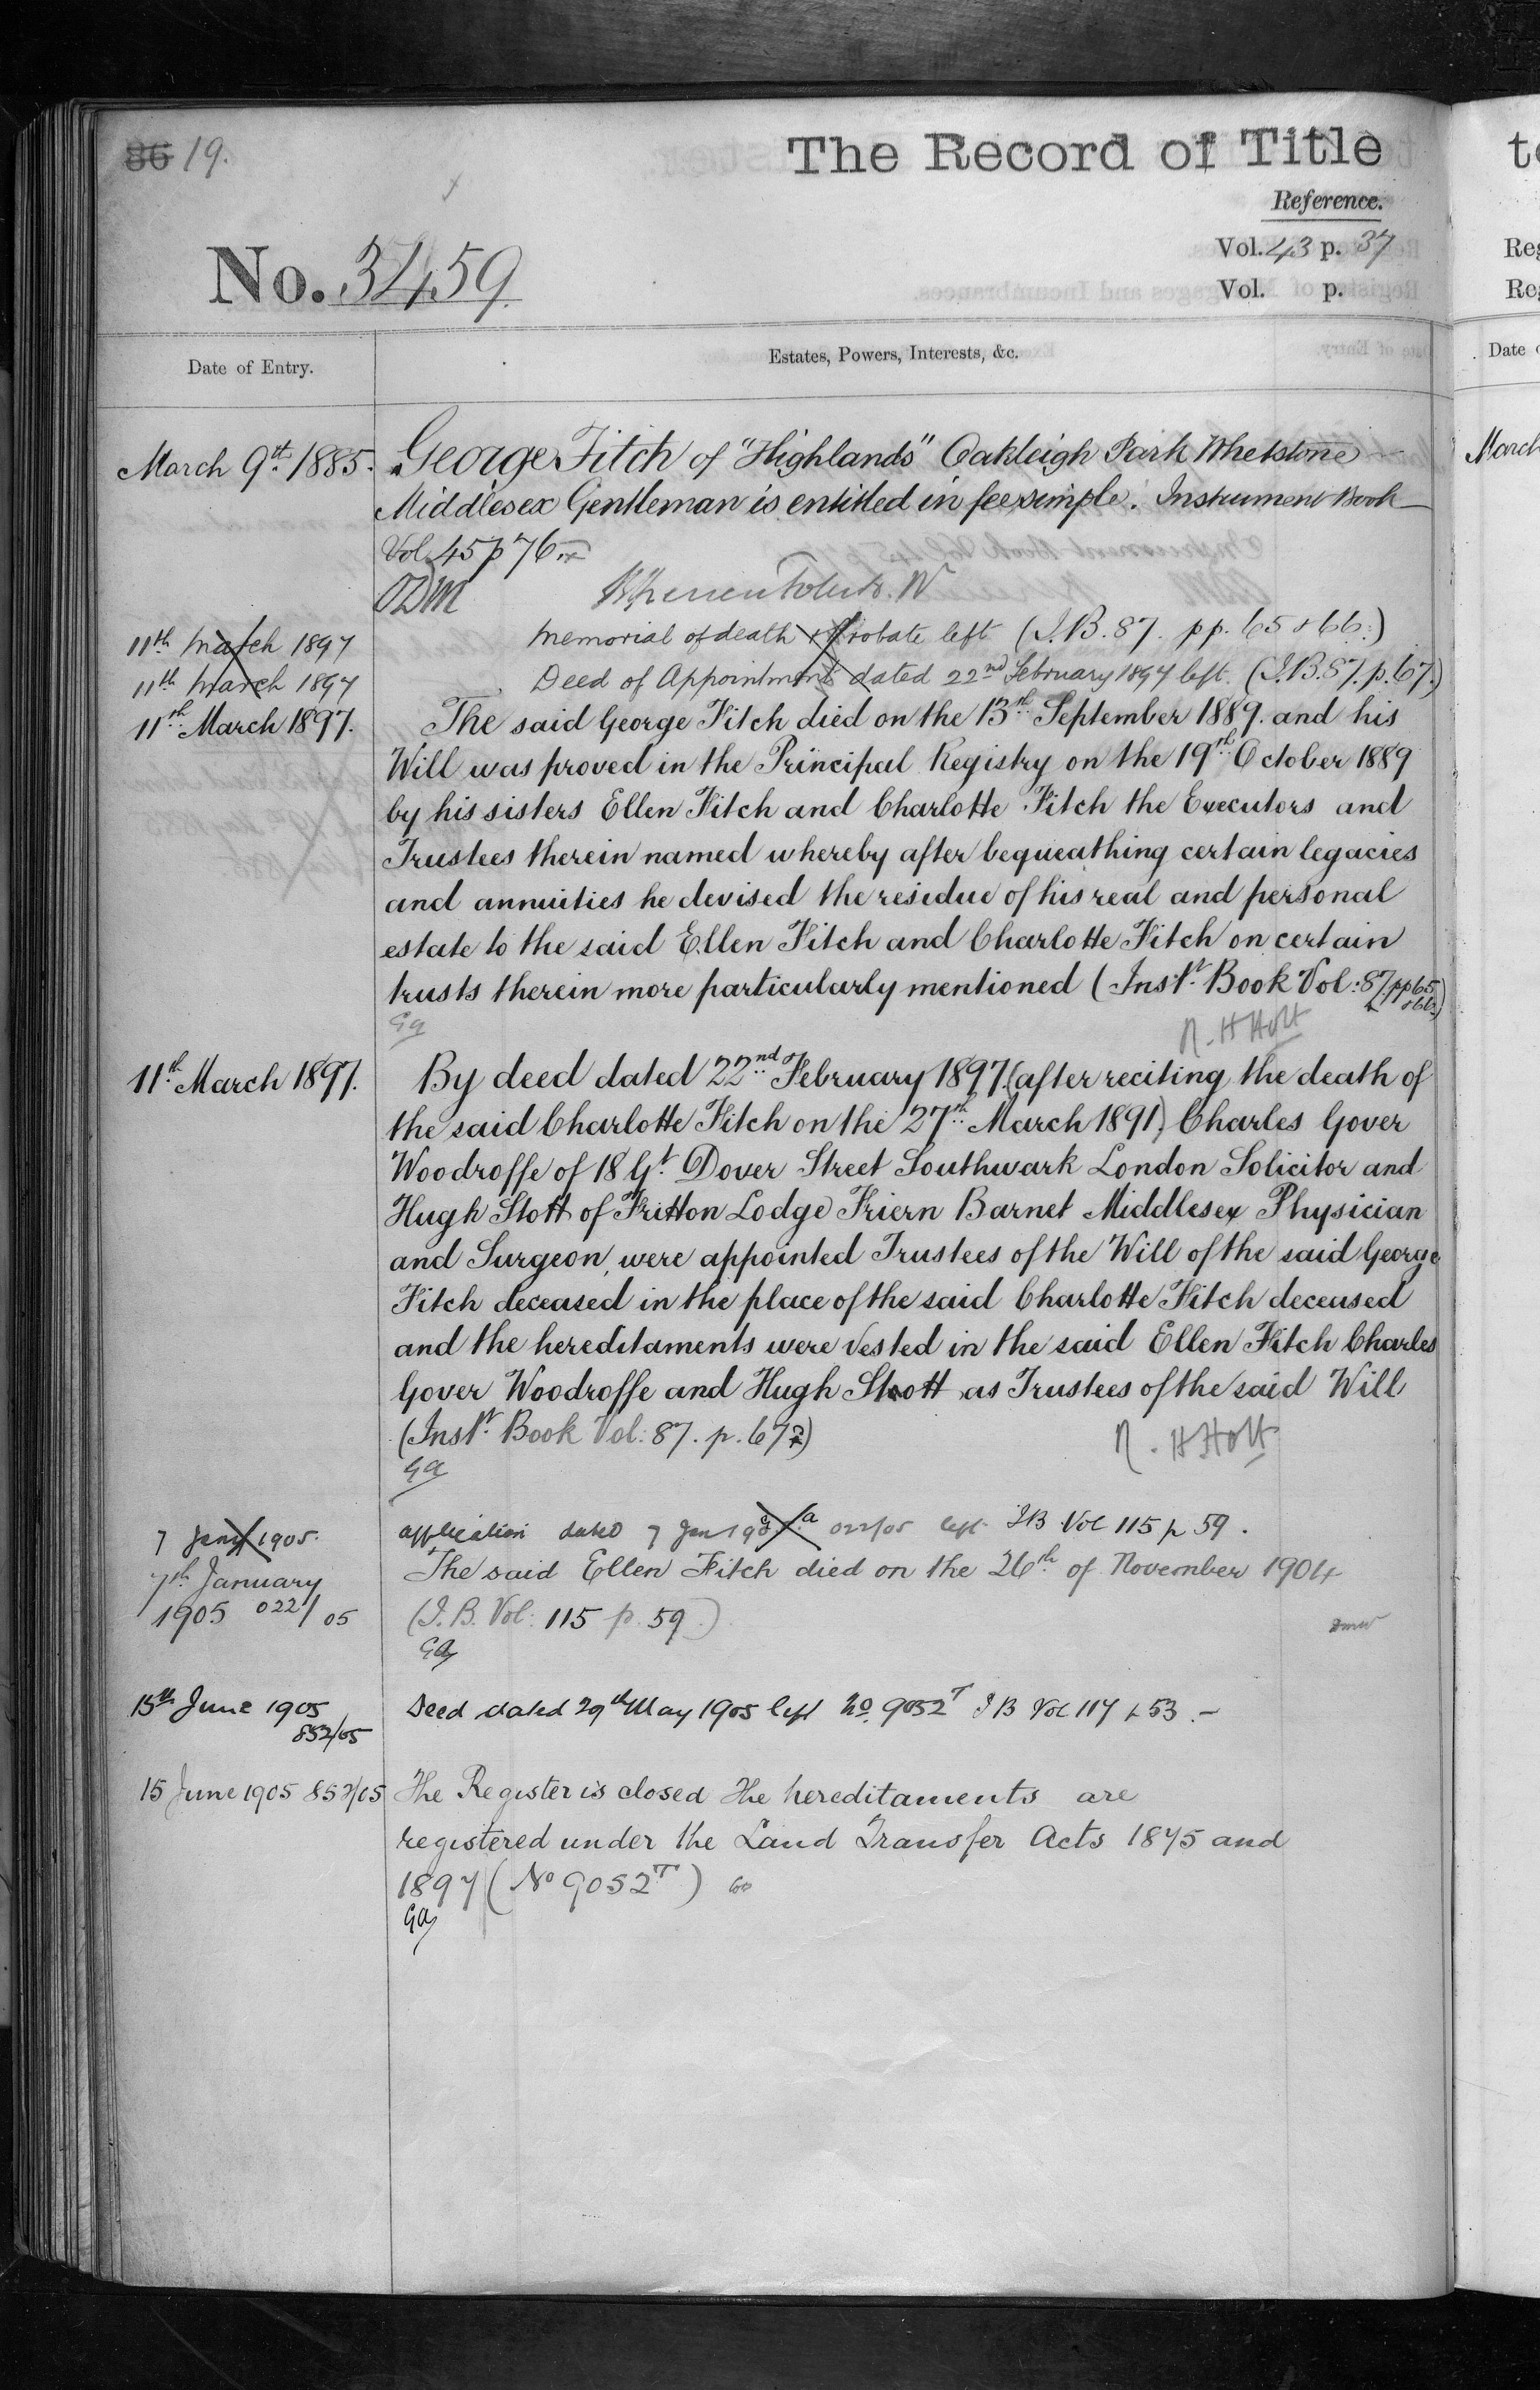 36 19.
The Record of Title
Reference.
Vol. 43 p. 37
No. 3459
Vol. p.
Date of Entry.
Estates, Powers, Interests, &c.
March 9th. 1885. George Fitch of "Highlands" Oakleigh Park Whetstone
Middlesex Gentleman is entitled in fee simple. Instrument Book
Vol. 45 p 76
11th March 1897 Memorial of death & Probate left (I.B. 87. pp. 65 & 66.)
11th March 1897 Deed of Appointment dated 22nd February 1897 left. (I.B. 87. p. 67.)
11th March 1897. The said George Fitch died on the 13th September 1889. and his
Will was proved in the Principal Registry on the 19th October 1889
by his sisters Ellen Fitch and Charlotte Fitch the Executors and
Trustees therein named whereby after bequeathing certain legacies
and annuities he devised the residue of his real and personal
estate to the said Ellen Fitch and Charlotte Fitch on certain
trusts therein more particularly mentioned (Inst. Book Vol: 87. pp 65 & 66.)
Ga
R. H Holt
11th March 1897. By deed dated 22nd February 1897 (after reciting the death of
the said Charlotte Fitch on the 27th March 1891) Charles Gover
Woodroffe of 18 Gt. Dover Street Southwark London Solicitor and
Hugh Stott of Fritton Lodge Friern Barnet Middlesex Physician
and Surgeon, were appointed Trustees of the Will of the said George
Fitch deceased in the place of the said Charlotte Fitch deceased
and the hereditaments were vested in the said Ellen Fitch Charles
Gover Woodroffe and Hugh Stott as Trustees of the said Will
(Inst. Book Vol: 87. p. 67)
R. H Holt
Ga
7 Jany 1905. application dated 7 Jan 1905 022/05 left IB Vol 115 p 59.
7th January The said Ellen Fitch died on the 26th of November 1904
1905 022/05 (I.B. Vol: 115 p. 59.)
Ga
15th June 1905 Deed dated 29th May 1905 left No. 9052T IB Vol 117 p 53.-
852/05
15 June 1905 852/05 The Register is closed The hereditaments are
registered under the Land Transfer Acts 1875 and
1897 (No 9052T)
Ga
Reg
Reg
Date
March